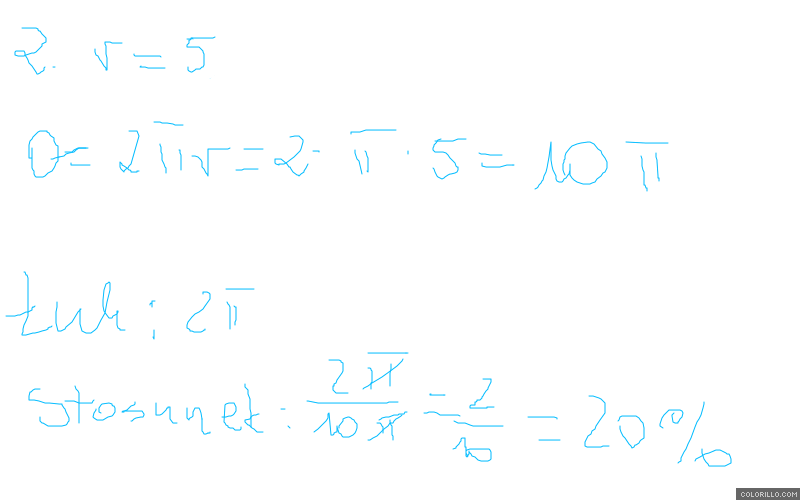 2. r = 5
O = 2πr = 2 · π · 5 = 10π
Łuk : 2π
Stosunek : 2π/10π = 2/10 = 20%
COLORILLO.COM